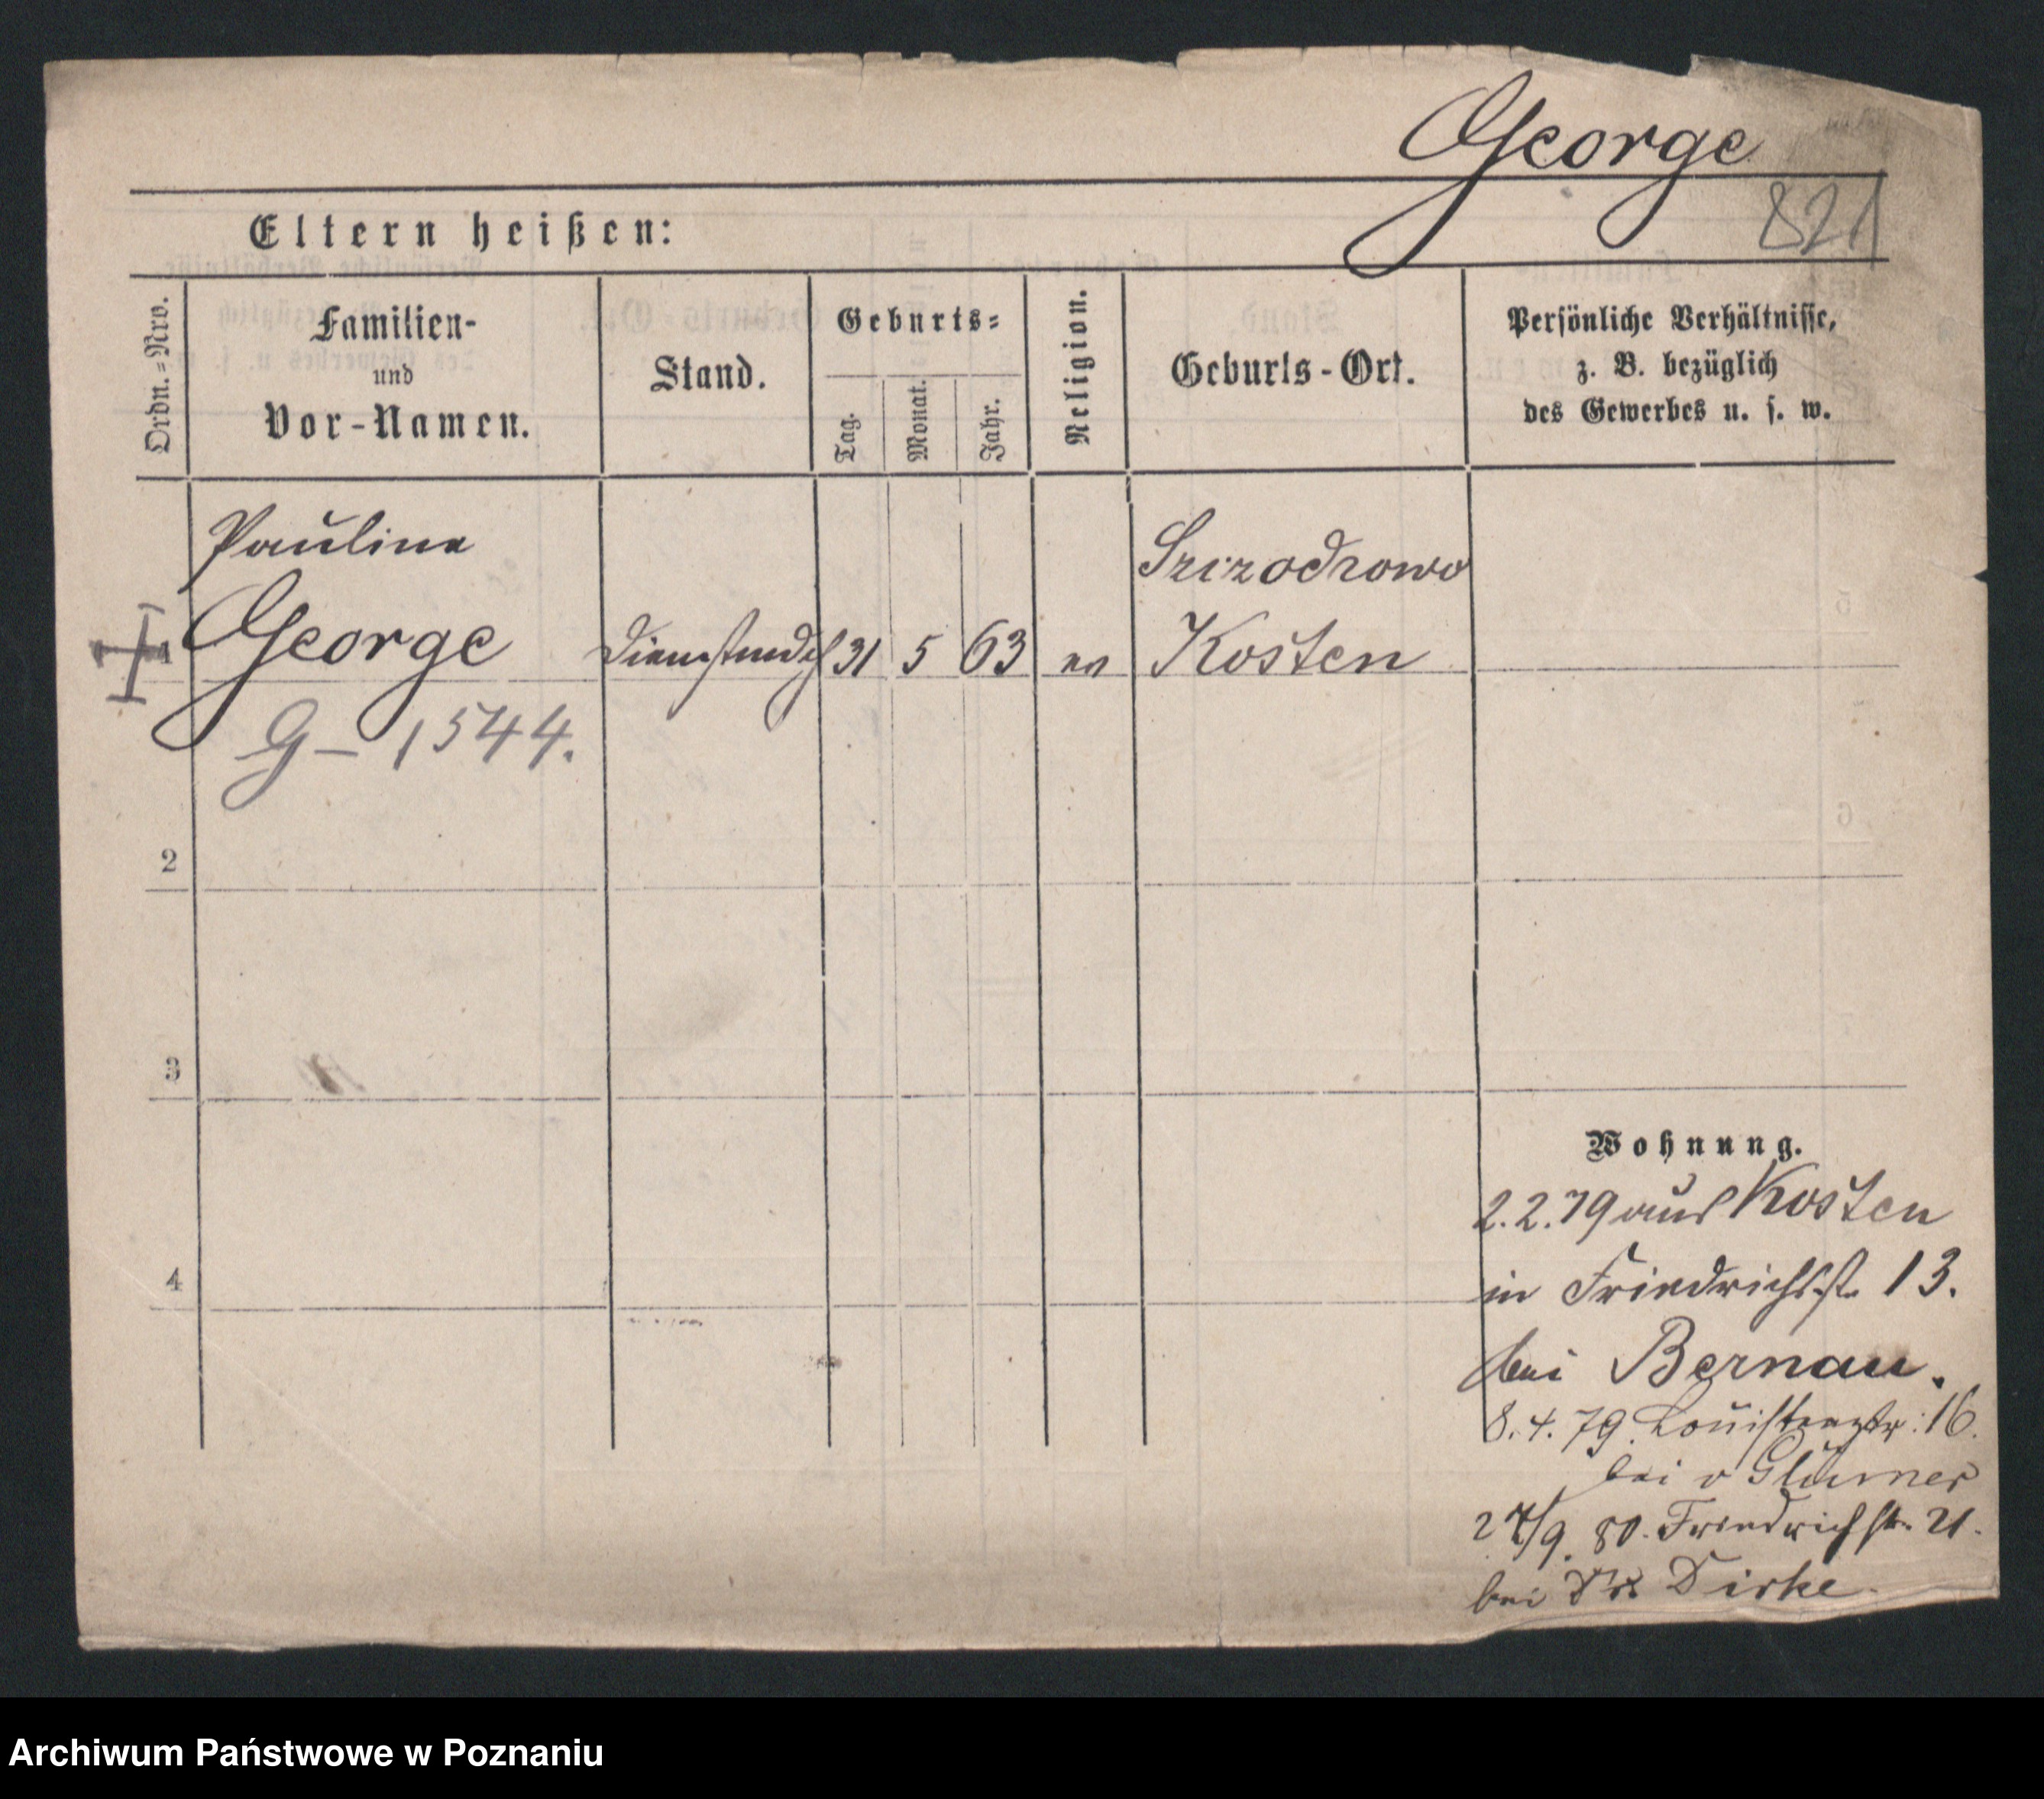 George
821
Eltern heißen:
Ordn.=Nro.
Familien-
und
Vor-Namen.
Stand.
Geburts=
Tag.
Monat.
Jahr.
Religion.
Geburts-Ort.
Persönliche Verhältnisse,
z. B. bezüglich
des Gewerbes u. s. w.
Pauline
George
31 5 63 ev
Kosten
1
G- 1544.
2
3
4
Wohnung.
2.2.79 aus Kosten
in Friedrichsst. 13.
bei Bernau.
8.4.79. 16.
bei v Glümer
27/9. 80. Friedrichstr. 21.
bei Dirke.
Archiwum Państwowe w Poznaniu